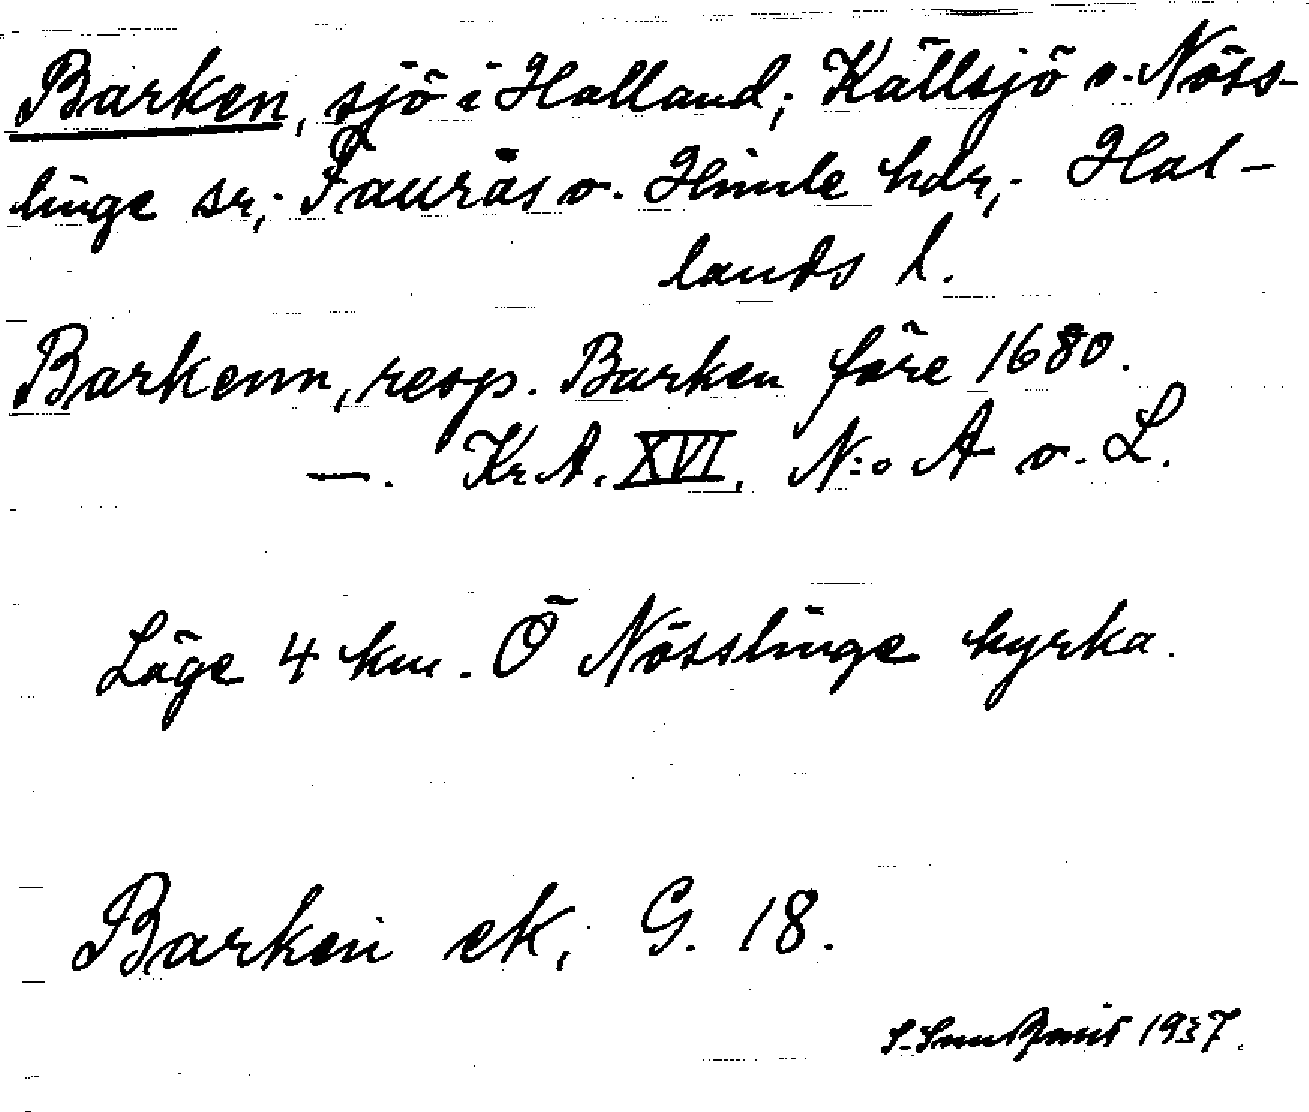 Barken, sjö i Halland; Källsjö o. Nöss-
linge sr; Faurås o. Himle hdr; Hal-
lands l.
Barkenn, resp. Barken före 1680.
—. Kr.A. XVI. N:o A o. L.
Läge 4 km. Ö Nösslinge kyrka.
Barken ek, G. 18.
S. Sundqvist 1937.